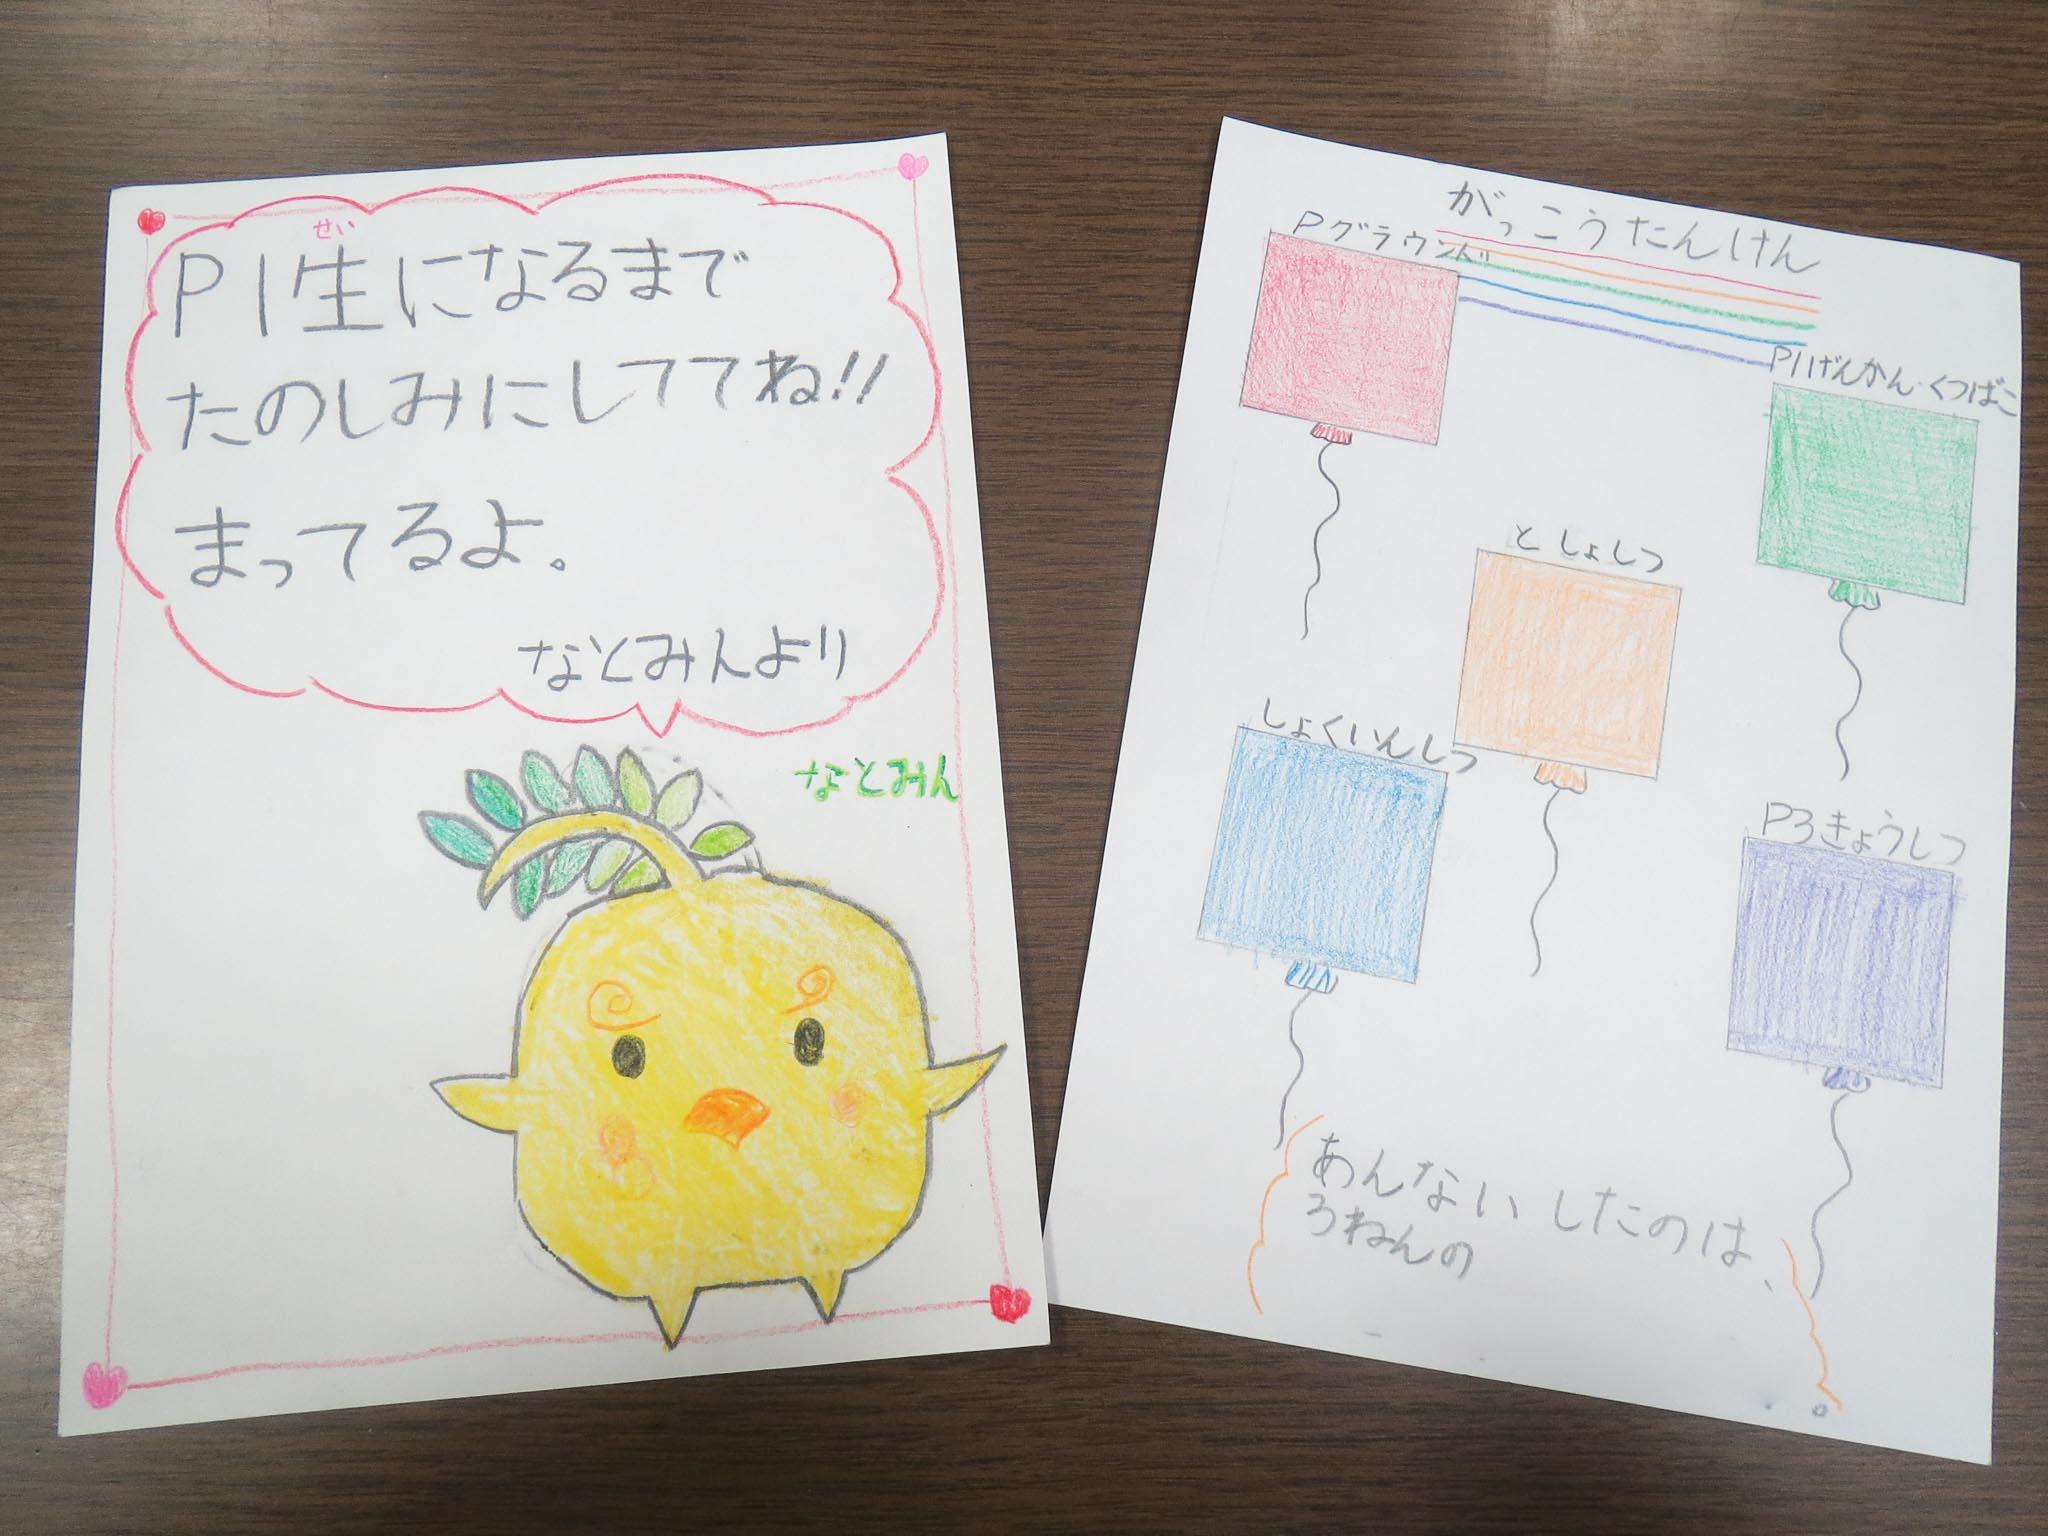 せい
P1生になるまで
たのしみにしててね!!
まってるよ。
なとみんより
なとみん
がっこうたんけん
Pグラウンド
P1げんかん・くつばこ
としょしつ
しょくいんしつ
P3きょうしつ
あんないしたのは、
3ねんの
。